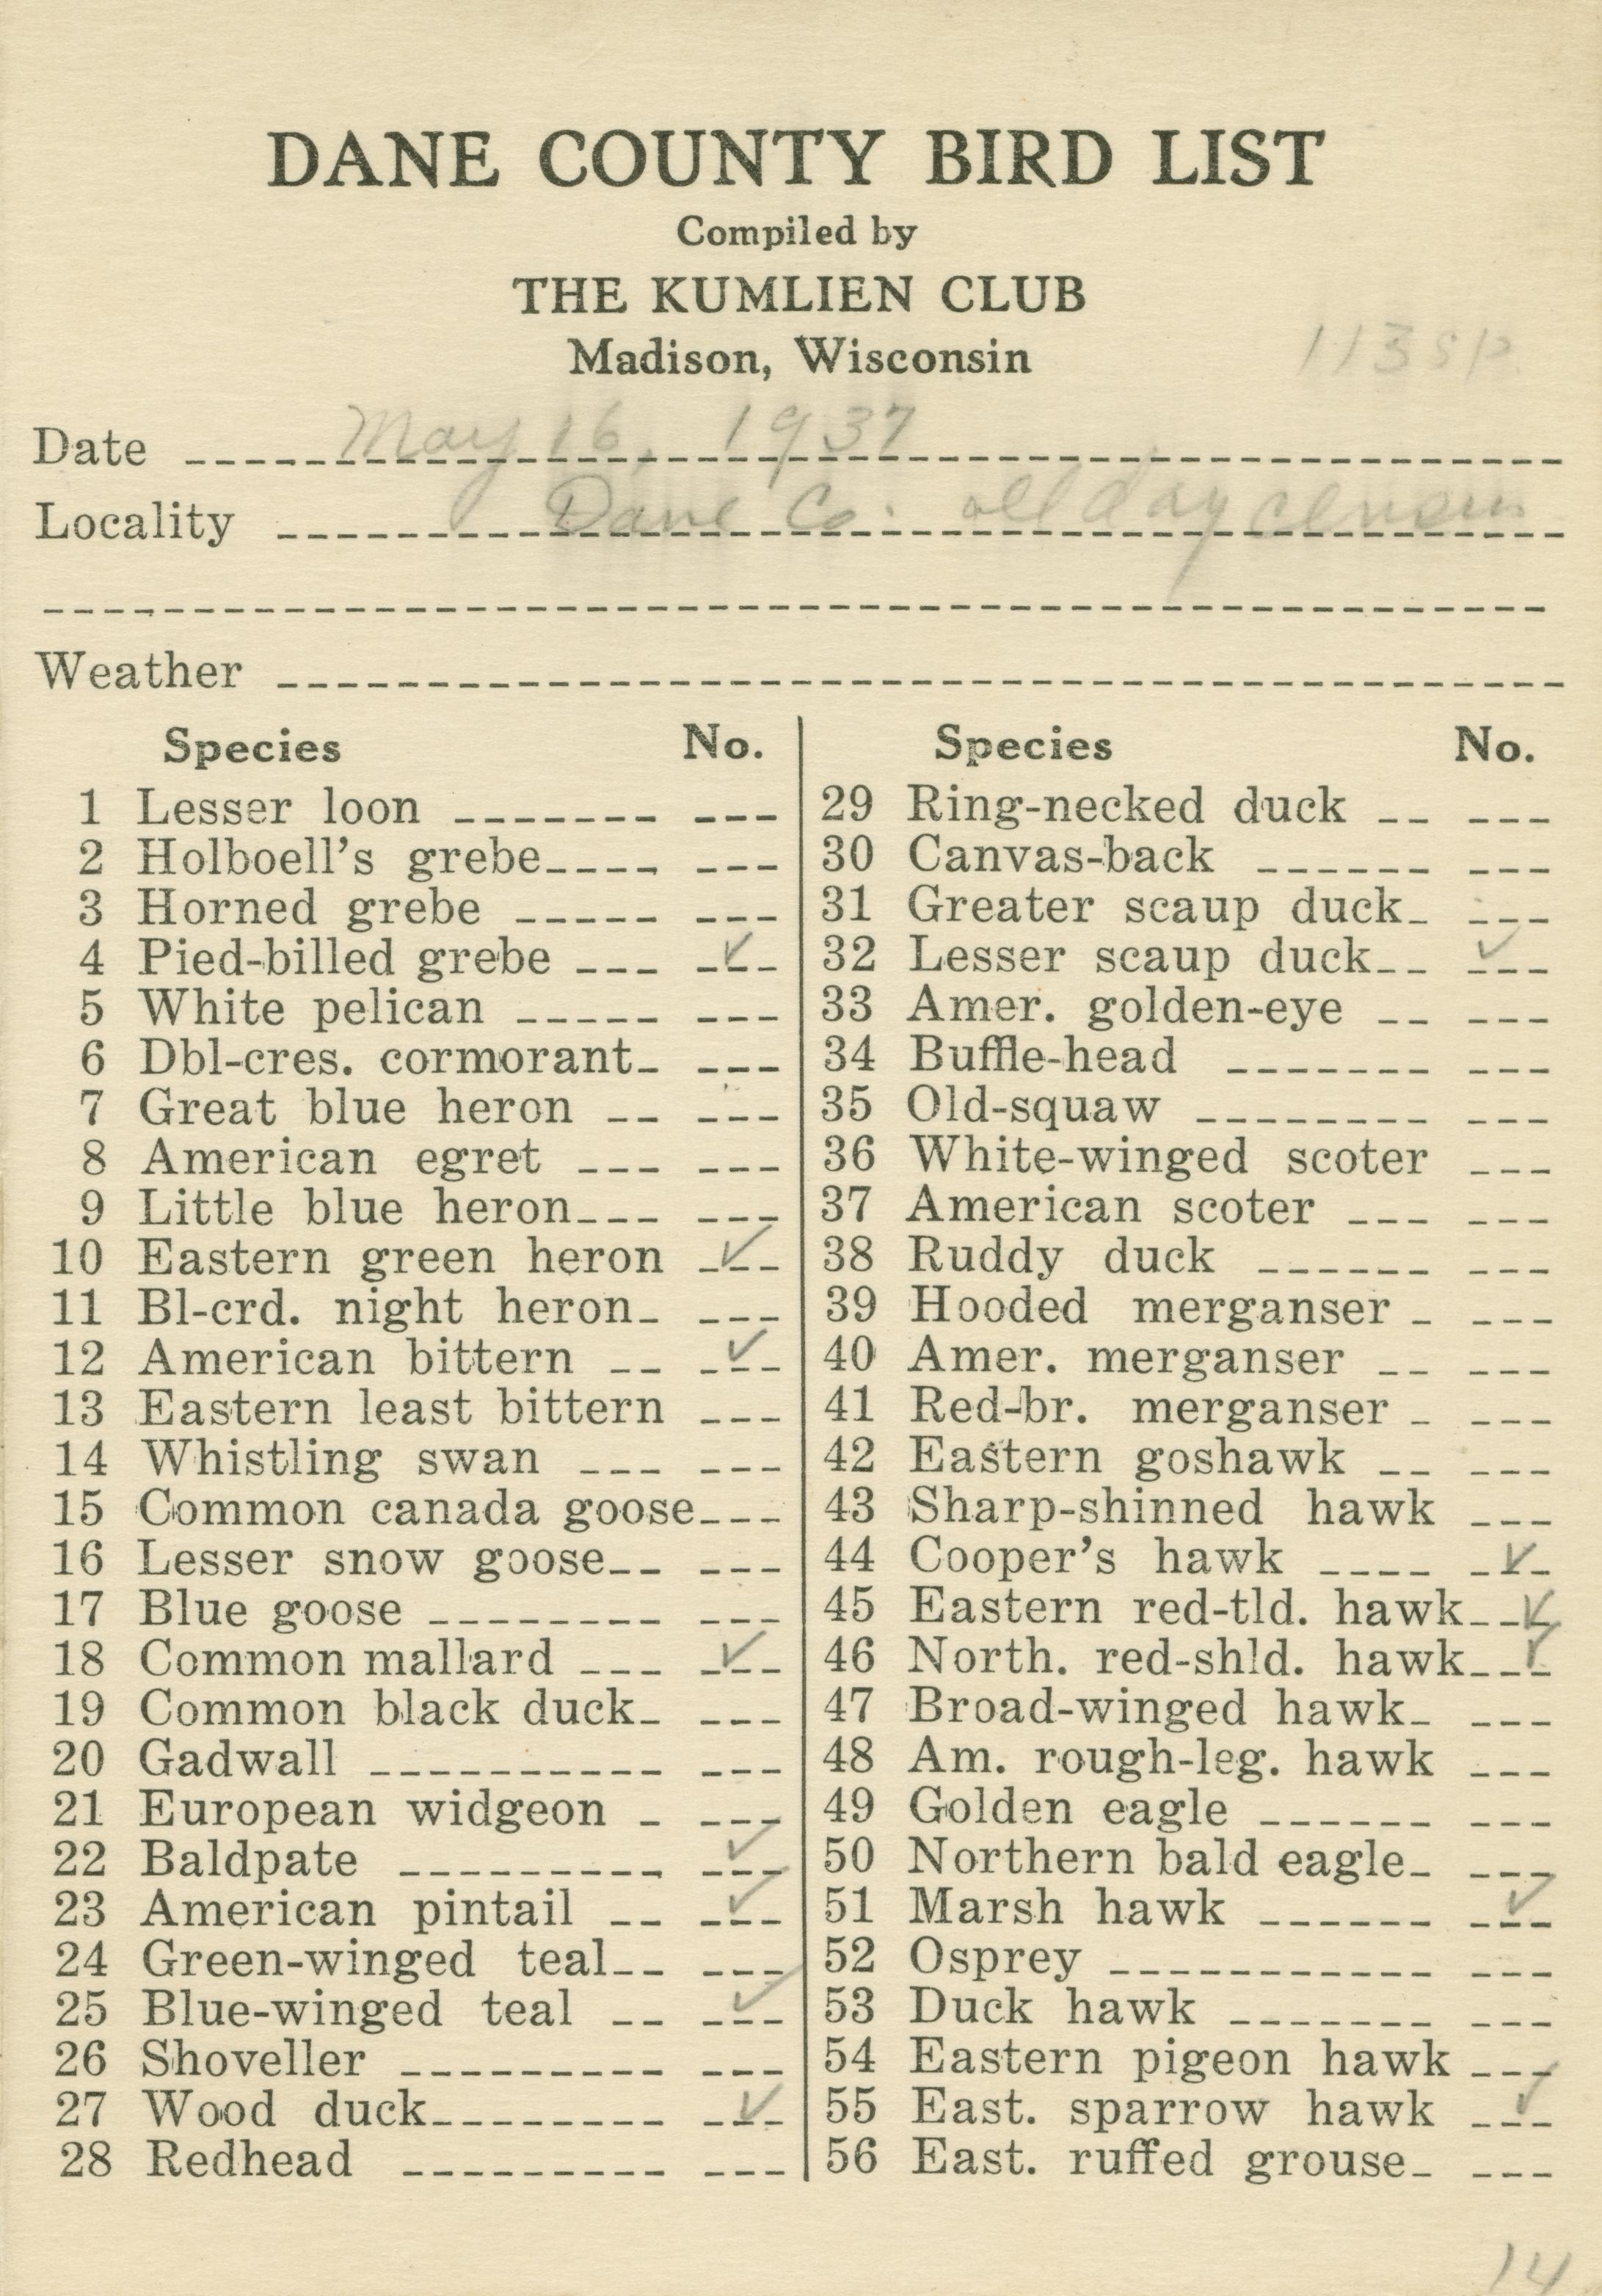 DANE COUNTY BIRD LIST
Compiled by
THE KUMLIEN CLUB
Madison, Wisconsin
113 sp.
Date May 16, 1937
Locality Dane Co. all day census
Weather
Species No.
1 Lesser loon
2 Holboell's grebe
3 Horned grebe
4 Pied-billed grebe ✓
5 White pelican
6 Dbl-cres. cormorant
7 Great blue heron
8 American egret
9 Little blue heron
10 Eastern green heron ✓
11 Bl-crd. night heron
12 American bittern ✓
13 Eastern least bittern
14 Whistling swan
15 Common canada goose
16 Lesser snow goose
17 Blue goose
18 Common mallard ✓
19 Common black duck
20 Gadwall
21 European widgeon
22 Baldpate ✓
23 American pintail ✓
24 Green-winged teal
25 Blue-winged teal ✓
26 Shoveller
27 Wood duck ✓
28 Redhead
Species No.
29 Ring-necked duck
30 Canvas-back
31 Greater scaup duck
32 Lesser scaup duck ✓
33 Amer. golden-eye
34 Buffle-head
35 Old-squaw
36 White-winged scoter
37 American scoter
38 Ruddy duck
39 Hooded merganser
40 Amer. merganser
41 Red-br. merganser
42 Eastern goshawk
43 Sharp-shinned hawk
44 Cooper's hawk ✓
45 Eastern red-tld. hawk ✓
46 North. red-shld. hawk ✓
47 Broad-winged hawk
48 Am. rough-leg. hawk
49 Golden eagle
50 Northern bald eagle
51 Marsh hawk ✓
52 Osprey
53 Duck hawk
54 Eastern pigeon hawk
55 East. sparrow hawk ✓
56 East. ruffed grouse
14